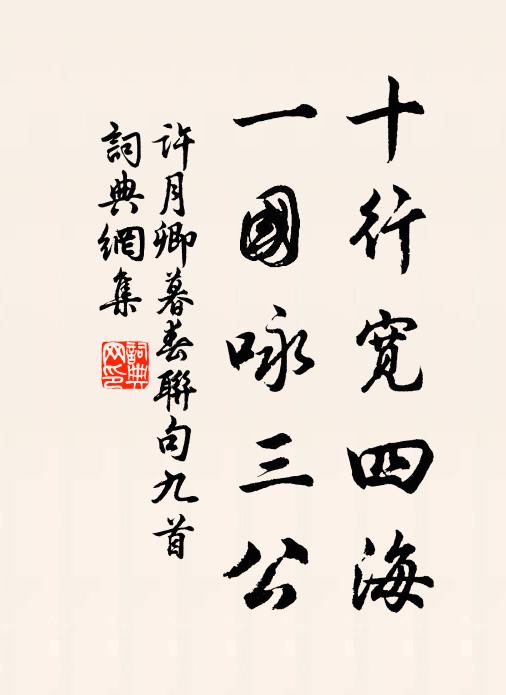 十行寬四海
一國咏三公
許月卿暮春聯句九首
詞典網集
詞典网印